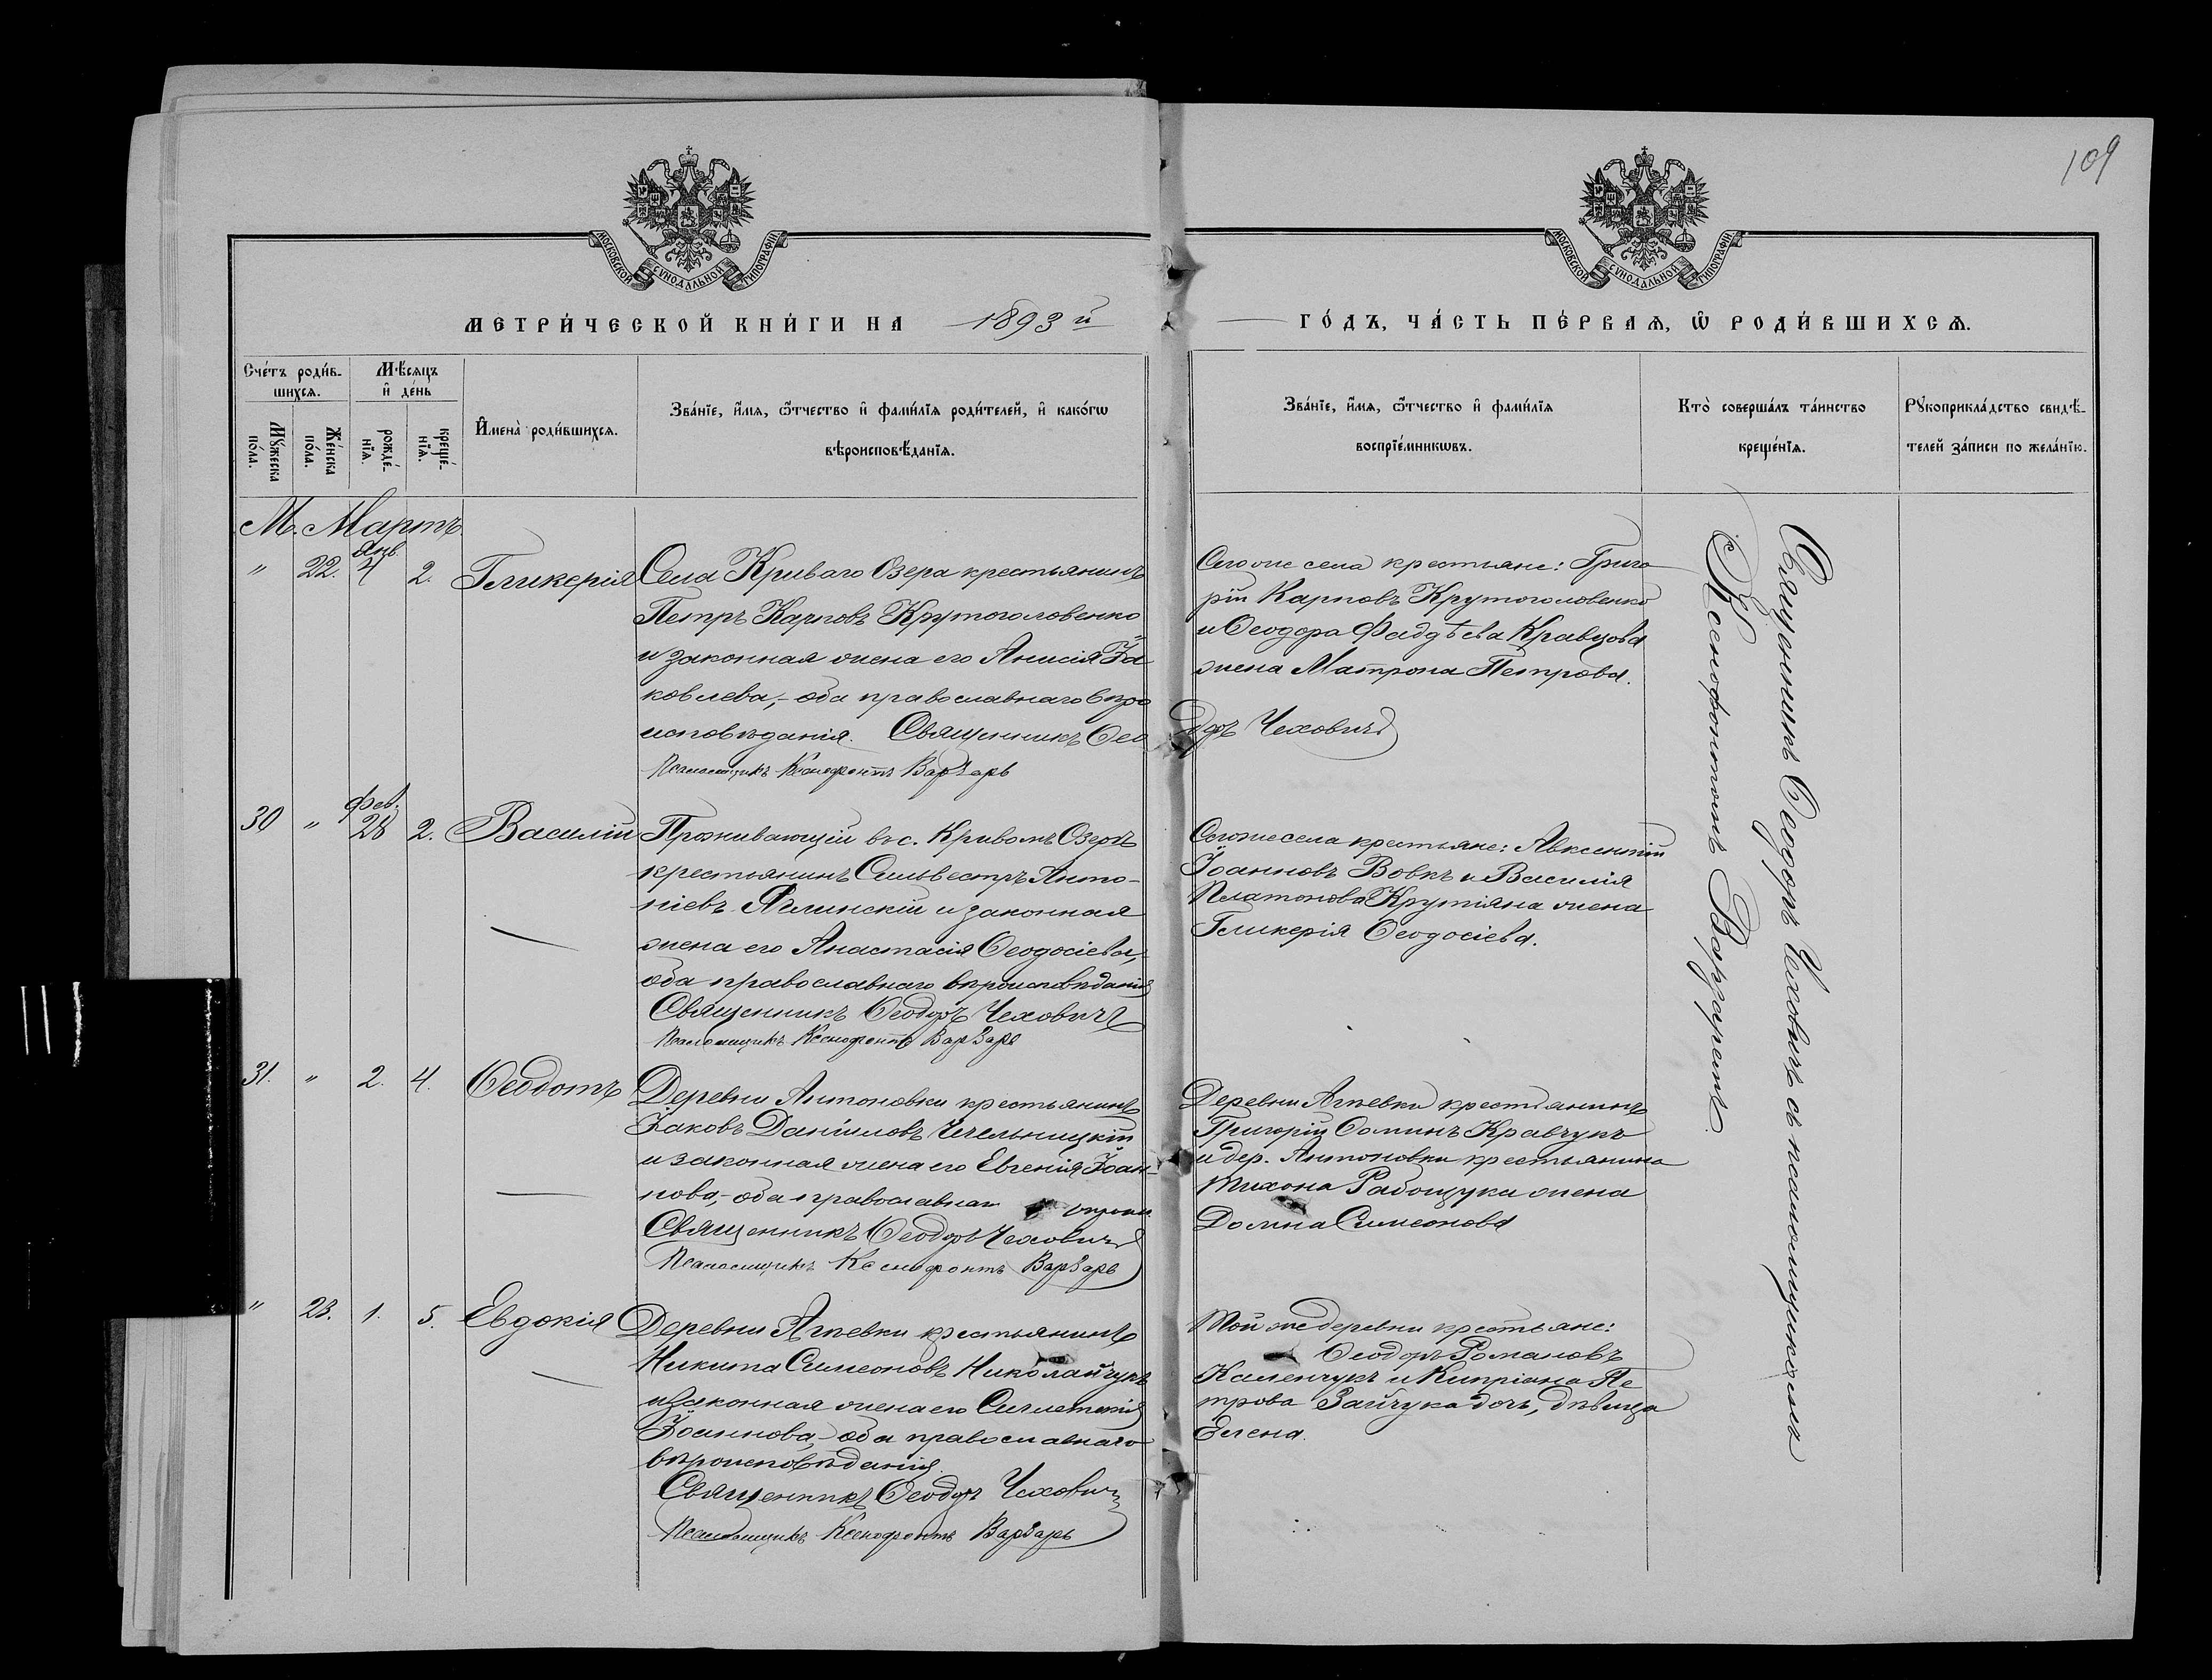 109
МОСКОВСКОЙ СѴНОДАЛЬНОЙ ТИПОГРАФІИ.
МОСКОВСКОЙ СѴНОДАЛЬНОЙ ТИПОГРАФІИ.
МЕТРИ́ЧЕСКОЙ КНИ́ГИ НА 1893 й
ГО́ДЪ, ЧА́СТЬ ПЕ́РВАѦ, Ѿ РОДИ́ВШИХСѦ.
Сче́тъ роди́в-
шихсѧ.
Мꙋ́жеска по́ла.
Же́нска по́ла.
Мѣ́сяцъ
и҆ де́нь
рожде́-
нїѧ.
креще́-
нїѧ.
И҆мена̀ роди́вшихсѧ.
Зва́нїе, и҆́мѧ, ѻ҆́тчество и҆ фами́лїѧ роди́телей, и҆ како́гѡ
вѣроисповѣ́данїѧ.
Зва́нїе, и҆́мѧ, ѻ҆́тчество и҆ фами́лїѧ
воспрїе́мникѡвъ.
Кто̀ соверша́лъ та́инство
креще́нїѧ.
Рꙋкоприкла́дство свидѣ́-
телей за́писи по жела́нїю.
М. Мартъ.
" 22. Янв. 4 2. Гликерія
Села Криваго Озера крестьянинъ
Петръ Карповъ Крутоголовенко
и законная жена его Анисія Іа
ковлева,- оба православнаго вѣро
исповѣданія. Священникъ Ѳео
доръ Чеховичъ
Псаломщикъ Ксенофонтъ Варзарь
Сегоже села крестьяне: Григо
рій Карповъ Крутоголовенко
и Ѳеодора Фаддѣева Кравцова
жена Матрона Петрова.
30 " Фев. 28 2. Василій
Проживающій въ с. Кривомъ Озерѣ
крестьянинъ Сильвестръ Анто-
ніевъ Яглинскій и законная
жена его Анастасія Ѳеодосіева,
оба православнаго вѣроисповѣданія
Священникъ Ѳеодоръ Чеховичъ
Псаломщикъ Ксенофонтъ Варзарь
Сегоже села крестьяне: Авксентій
Іоанновъ Вовкъ и Василія
Платонова Крутіяна жена
Гликерія Ѳеодосіева.
31. " 2. 4. Ѳеодотъ
Деревни Антоновки крестьянинъ
Іаковъ Даніиловъ Чечельницкій
и законная жена его Евгенія Іоан-
нова,- оба православнаг
Священникъ Ѳеодоръ Чеховичъ
Псаломщикъ Ксенофонтъ Варзарь
Деревни Агѣевки крестьянинъ
Григорій Ѳоминъ Кравчукъ
и дер. Антоновки крестьянина
Тихона жена
Домна Симеонова
" 23. 1. 5. Евдокія
Деревни Агѣевки крестьянинъ
Никита Симеоновъ Николайчукъ
и законная жена его Синклетикія
Іоаннова,- оба православнаго
вѣроисповѣданія.
Священникъ Ѳеодоръ Чеховичъ
Псаломщикъ Ксенофонтъ Варзарь
Той же деревни крестьяне:
Ѳеодоръ Романовъ
Каленчукъ и Кипріана Пе
трова Зайчука дочь, дѣвица
Елена.
Священникъ Ѳеодоръ Чеховичъ съ псаломщикомъ
Ксенофонтомъ Варзаремъ.